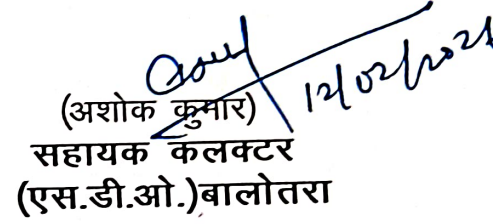 12/02/2021
(अशोक कुमार)
सहायक कलक्टर
(एस.डी.ओ.)बालोतरा